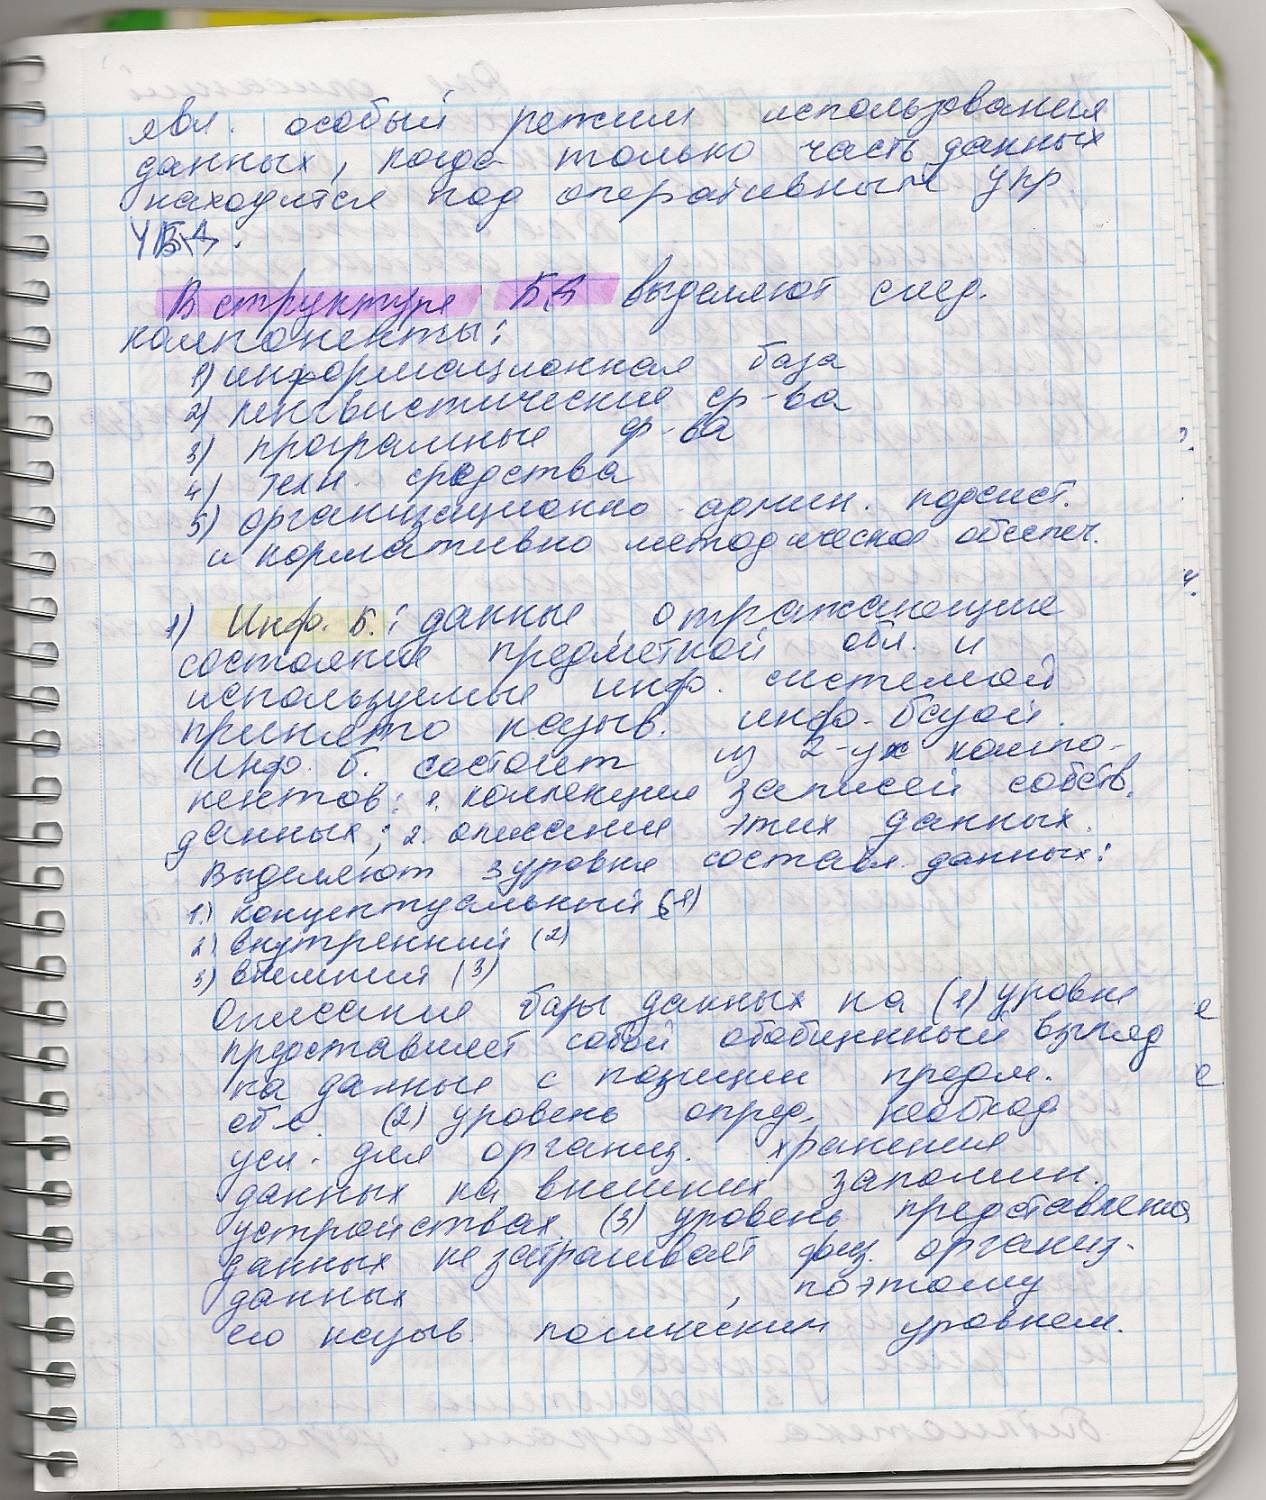 явл. особый режим использования
данных, когда только часть данных
находится под оперативным упр.
УБД.
В структуре БД выделяют след.
компоненты:
1) информационная база
2) лингвистические ср-ва
3) програмные ср-ва
4) техн. средства
5) организационно админ. подсист.
и нормативно методическое обеспеч.
1) Инф. Б.: данные, отражающие
состояние предметной обл. и
используемые инф. системой
принято назыв. инф. базой.
Инф. б. состоит из 2-ух компо-
нентов: 1. коллекция записей собств.
данных; 2. описание этих данных.
Выделяют 3 уровня составл. данных:
1.) концептуальный (1)
2) внутренний (2)
3) внешний (3)
Описание базы данных на (1) уровне
представляет собой обобщенный взгляд
на данные с позиции предм.
обл. (2) уровень опред. необход
усл. для организ. хранения
данных на внешних запомин.
устройствах (3) уровень представления
данных не затрагивает физ. организ-
данных, поэтому
его назыв. логическим уровнем.